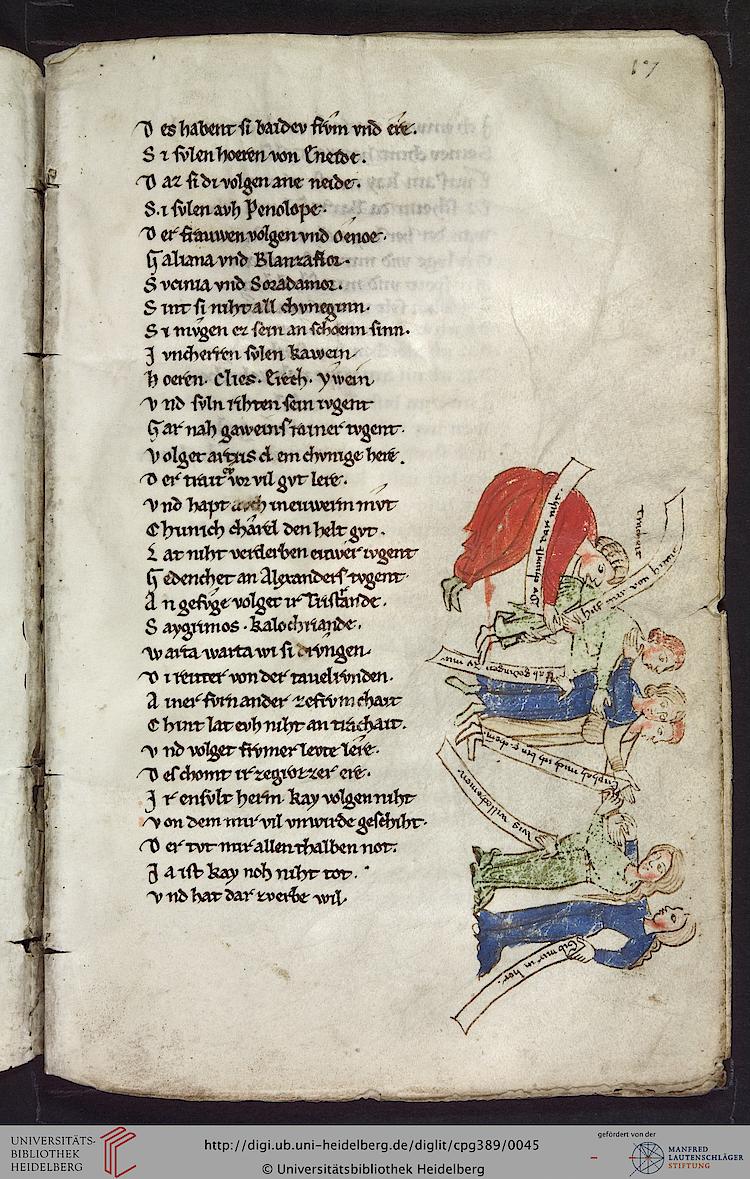 17
D es habent si baidev frvm vnd ere.
S i svlen hoeren von Eneide.
D az si di volgen ane neide.
S i svlen avh Penolope.
D er frauwen volgen vnd oenoe.
G aliana vnd Blanzaflor.
S vcinia vnd Soradamor.
S int si niht all chvneginn.
S i mvgen ez sein an schoenn sinn.
J vncherren svlen kawein.
h oeren. Clies. Erech. ywein
v nd svln rihten sein ivgent
G ar nah gaweins rainer tvgent.
v olget artus dem chvnige here.
D er trait vor vil gvt lere.
v nd hapt avch in euwerm mvt
C hunich charel den helt gvt.
L at niht verderben euwer ivgent
G edenchet an Alexanders tvgent.
A n gefvge volget ir Tristande.
S aygrimos. kalochriande.
w arta warta wi si drvngen.
D i reuter von der tauelrvnden.
A iner fvrn ander ze frvmchait
C hint lat evh niht an trachait.
v nd volget frvmer levte lere.
D es chomt ir ze grozzer ere.
J r ensvlt herrn. kay volgen niht
v on dem mir vil vnwirde geschiht.
D er tvt mir allenthalben not.
J a ist kay noh niht tot.
v nd hat dar zv erbe vil.
hilf mir von hinne
wis willechomen.
Gib mir in her.
UNIVERSITÄTS-
BIBLIOTHEK
HEIDELBERG
http://digi.ub.uni-heidelberg.de/diglit/cpg389/0045
© Universitätsbibliothek Heidelberg
gefördert von der
MANFRED
LAUTENSCHLÄGER
STIFTUNG